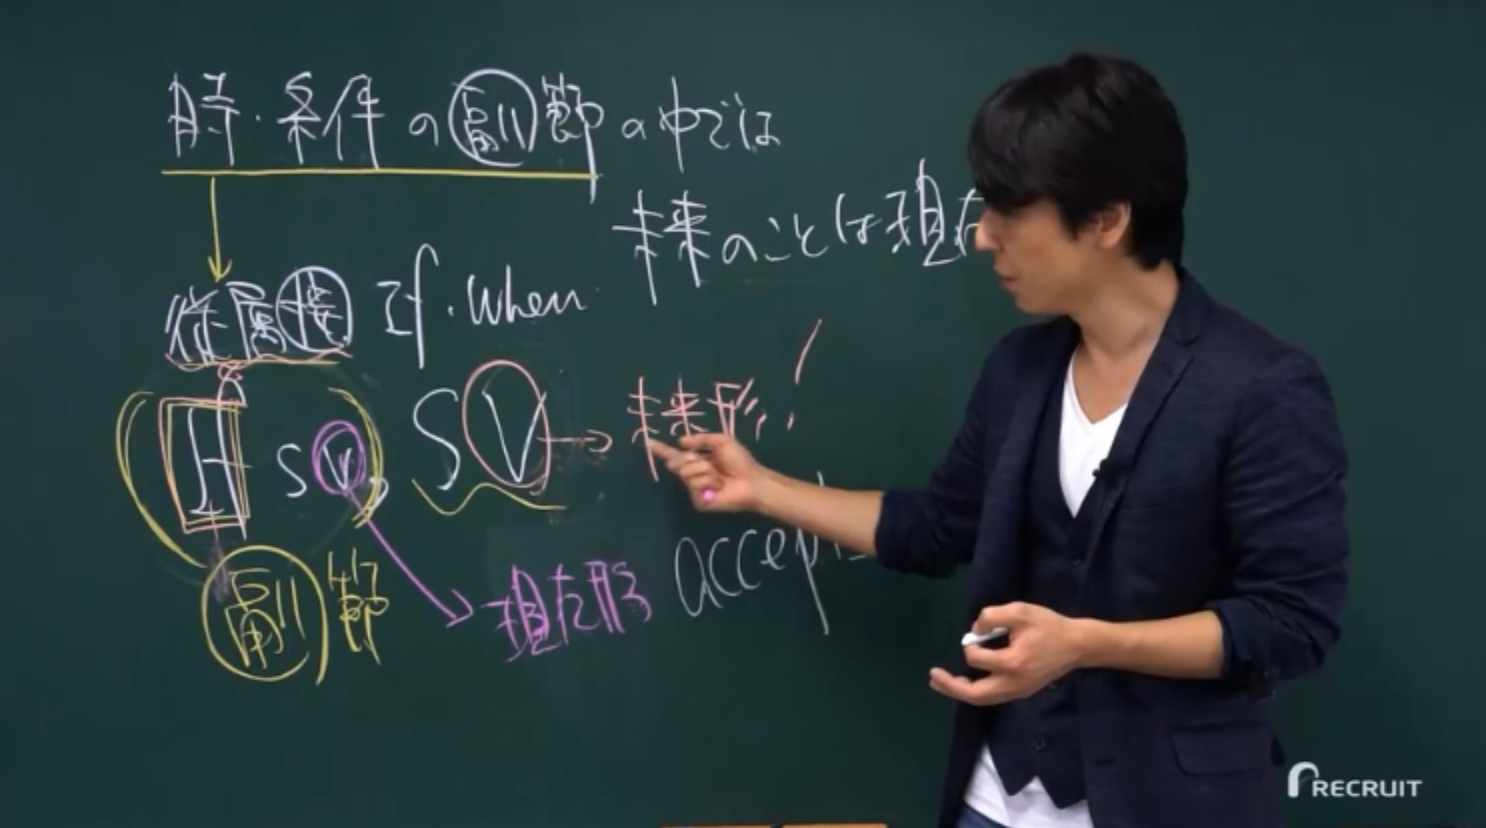 時・条件の副節の中では
未来のことは現在
従属接 If・When
If SV, SV → 未来形!
副節
現在形
accept
RECRUIT